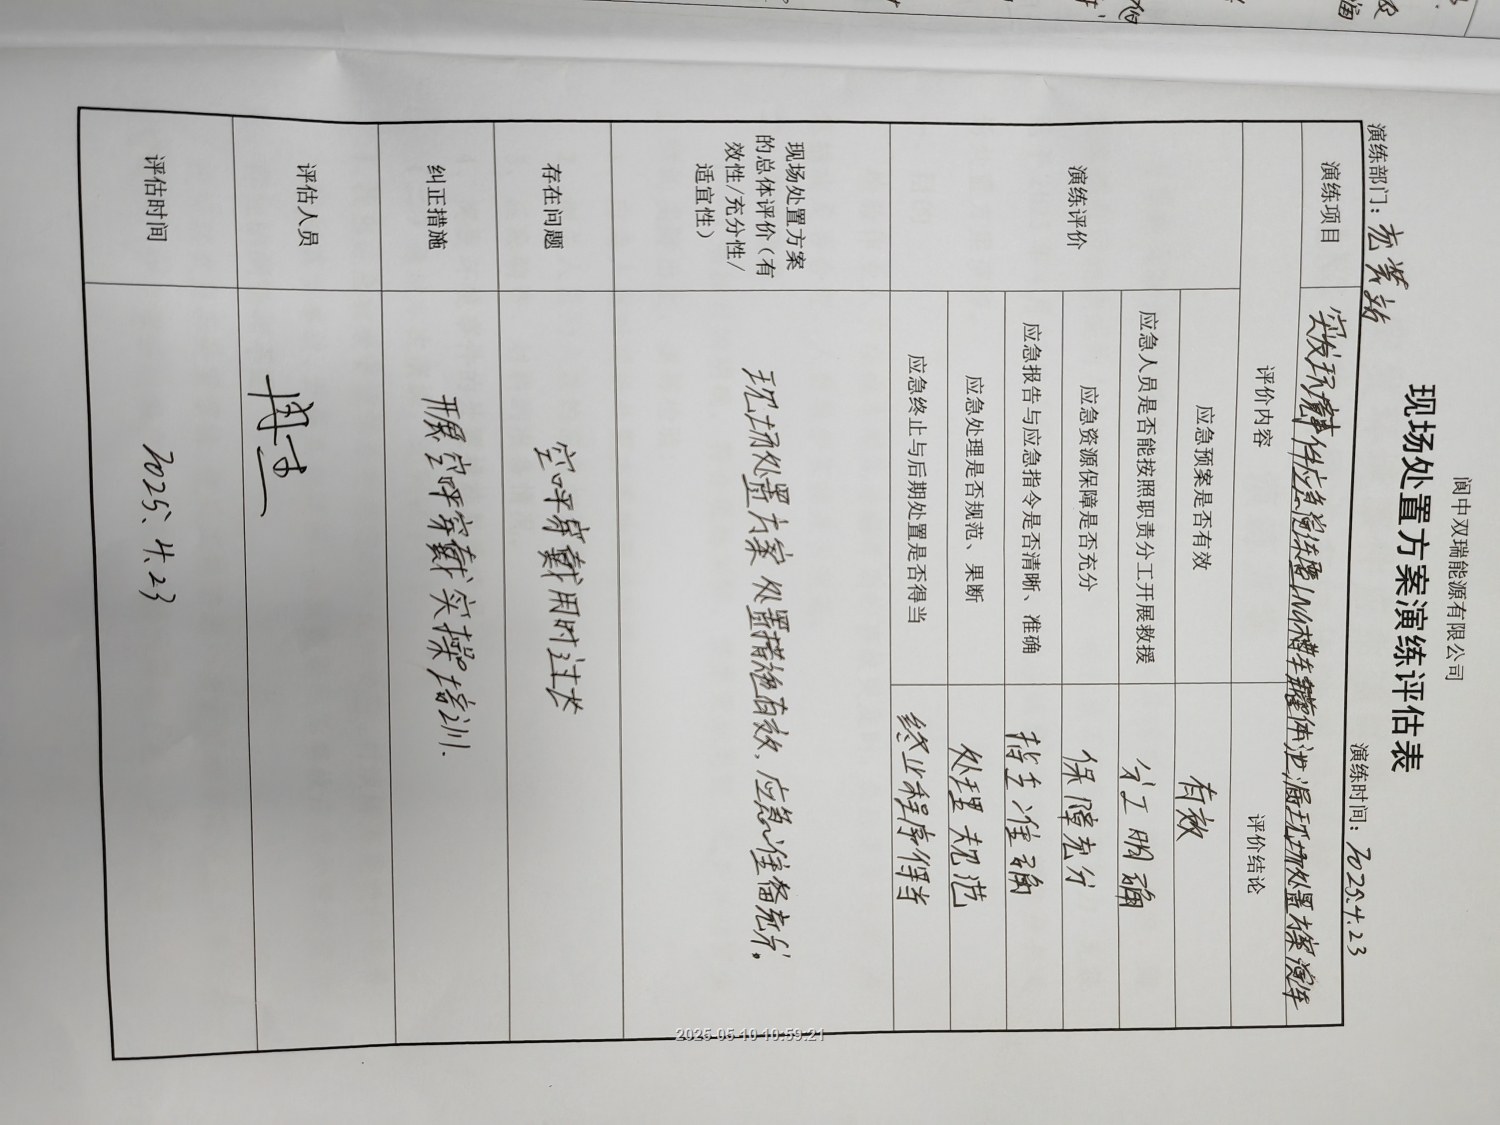 阆中双瑞能源有限公司
现场处置方案演练评估表
演练部门：充装站 演练时间：2025.4.23
演练项目 突发环境事件应急演练暨LNG槽车罐体泄漏现场处置方案演练
评价内容 评价结论
演练评价
应急预案是否有效 有效
应急人员是否能按照职责分工开展救援 分工明确
应急资源保障是否充分 保障充分
应急报告与应急指令是否清晰、准确 指令准确
应急处理是否规范、果断 处理规范
应急终止与后期处置是否得当 终止程序得当
现场处置方案
的总体评价（有
效性/充分性/
适宜性）
现场处置方案 处置措施有效，应急准备充分。
存在问题 空呼穿戴用时过长
纠正措施 开展空呼穿戴实操培训.
评估人员
评估时间 2025.4.23
2025-05-10 10:59:21